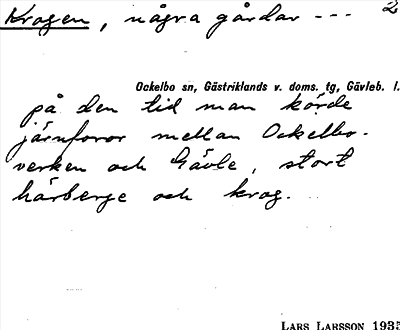 Krogen, några gårdar --- 2
Ockelbo sn, Gästriklands v. doms. tg, Gävleb. l.
på den tid man körde
järnforor mellan Ockelbo-
verken och Gävle, stort
härberge och krog.
LARS LARSSON 1935